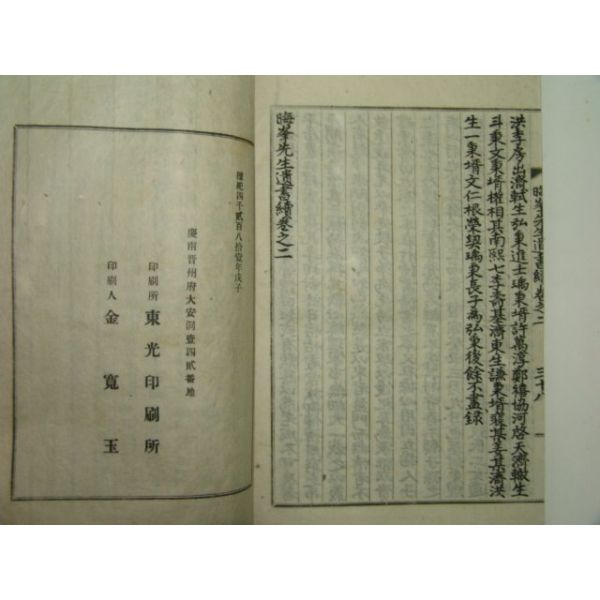 晦峯先生遺書續卷之二 三十八
洪李房出濟軾生弘東進士瑀東壻許萬淳鄭禧協河啓天濟轍生
斗東文東壻權相其南熙七李壽基濟東生謙東壻裵某姜某濟洪
生一東壻文仁根榮契瑀東長子爲弘東後餘不盡錄
晦峯先生遺書續卷之二
檀紀四千貳百八拾壹年戊子
慶南晋州府大安洞壹四貳番地
印刷所 東光印刷所
印刷人 金寬玉